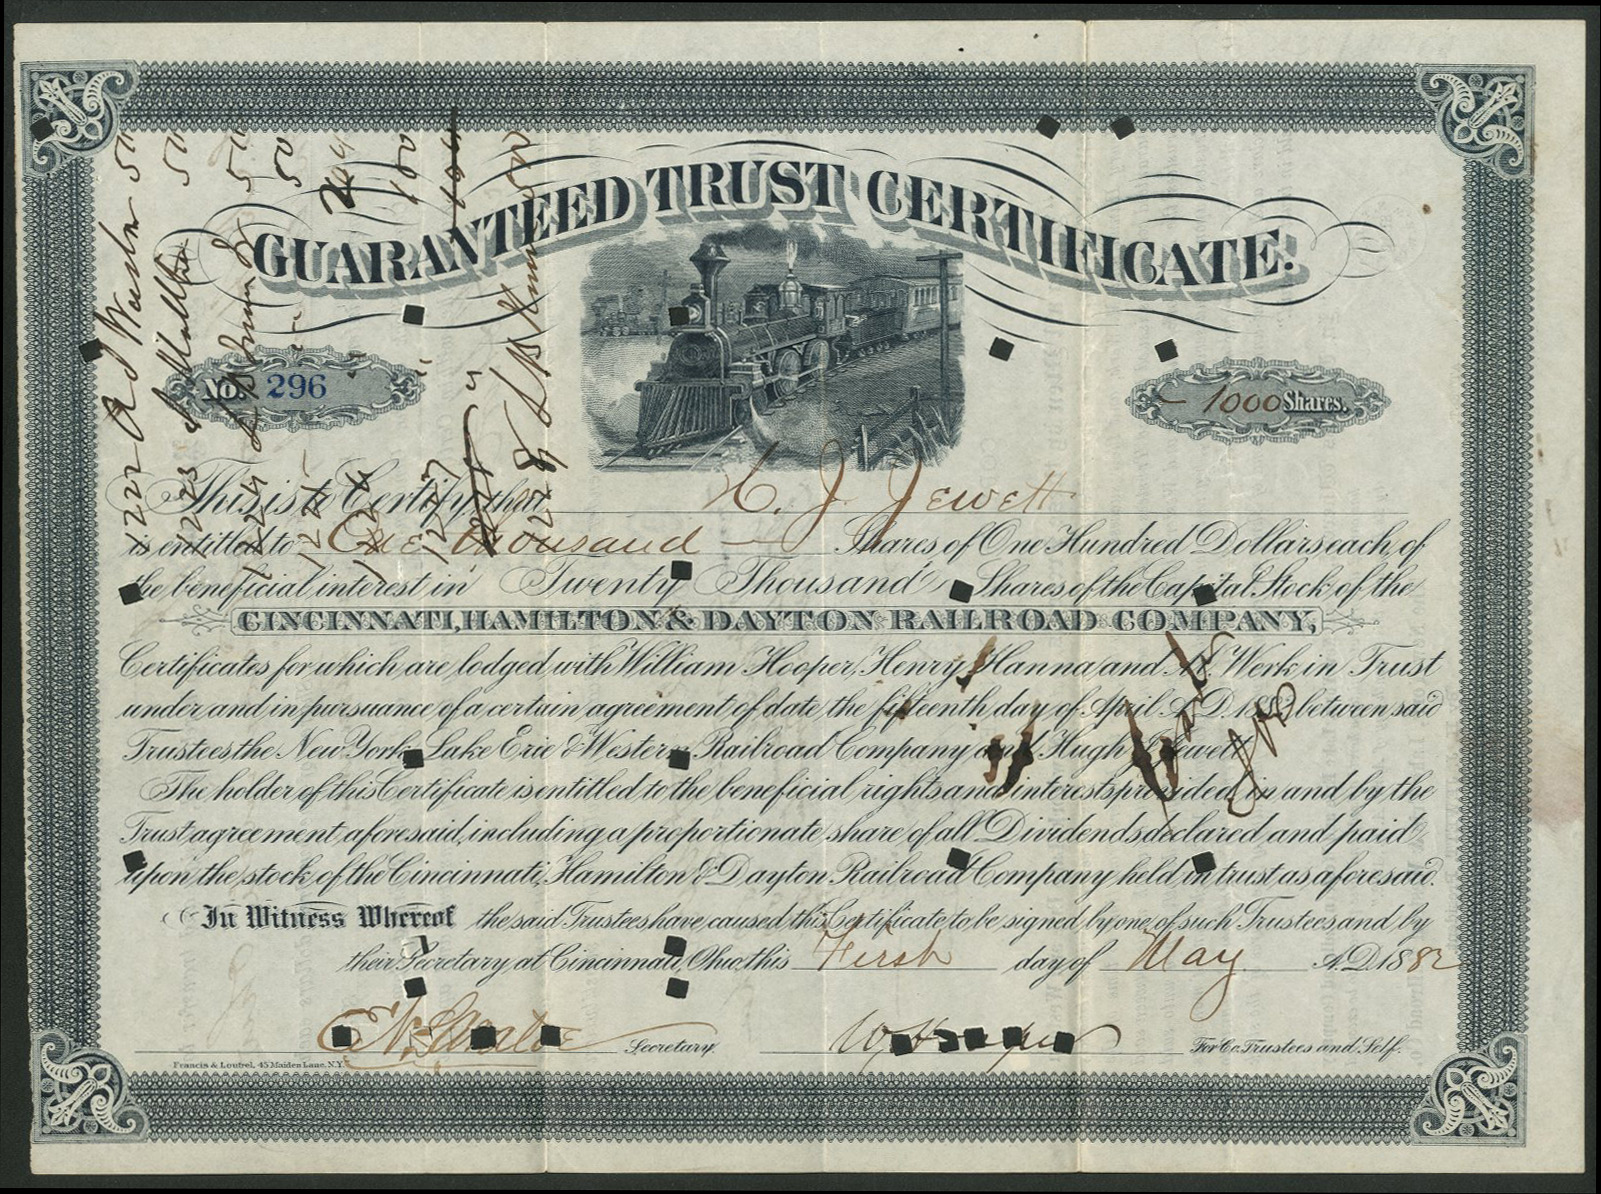 GUARANTEED TRUST CERTIFICATE.
No. 296
1000 Shares.
This is to Certify that H. J. Jewett
is entitled to One thousand Shares of One Hundred Dollars each, of
the beneficial interest in Twenty Thousand Shares of the Capital Stock of the
CINCINNATI, HAMILTON & DAYTON RAILROAD COMPANY,
Certificates for which are lodged with William Hooper, Henry Hanna and M. Werk in Trust
under and in pursuance of a certain agreement of date, the fifteenth day of April A.D. 1882 between said
Trustees, the New York, Lake Erie & Western Railroad Company and Hugh J. Jewett.
The holder of this Certificate is entitled to the beneficial rights and interests provided in and by the
Trust agreement aforesaid, including a proportionate share of all Dividends declared and paid
upon the stock of the Cincinnati, Hamilton & Dayton Railroad Company held in trust as aforesaid.
In Witness Whereof the said Trustees have caused this Certificate to be signed by one of such Trustees and by
their Secretary at Cincinnati, Ohio, this First day of May A.D. 1882
Secretary. W. Hooper For Co. Trustees and Self.
Francis & Loutrel, 45 Maiden Lane, N.Y.
1222
50
1223
50
1224
50
1225
50
1227
100
500